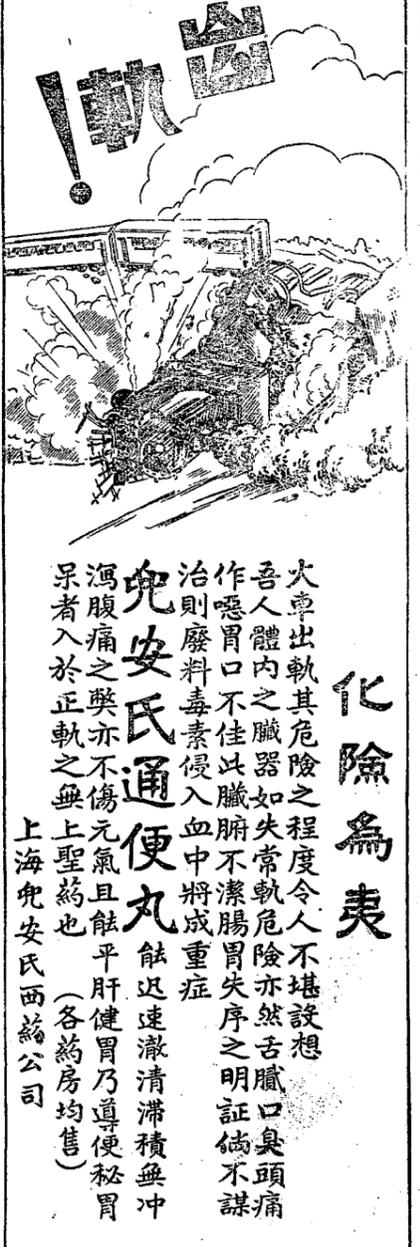 齒軌！
化險為夷
火車出軌其危險之程度令人不堪設想
吾人體內之臟器如失常軌危險亦然舌膩口臭頭痛
作噁胃口不佳此臟腑不潔腸胃失序之明証倘不謀
治則廢料毒素侵入血中將成重症
兜安氏通便丸 能迅速澈清滯積無冲
瀉腹痛之弊亦不傷元氣且能平肝健胃乃導便秘胃
呆者入於正軌之無上聖葯也 （各葯房均售）
上海兜安氏西葯公司